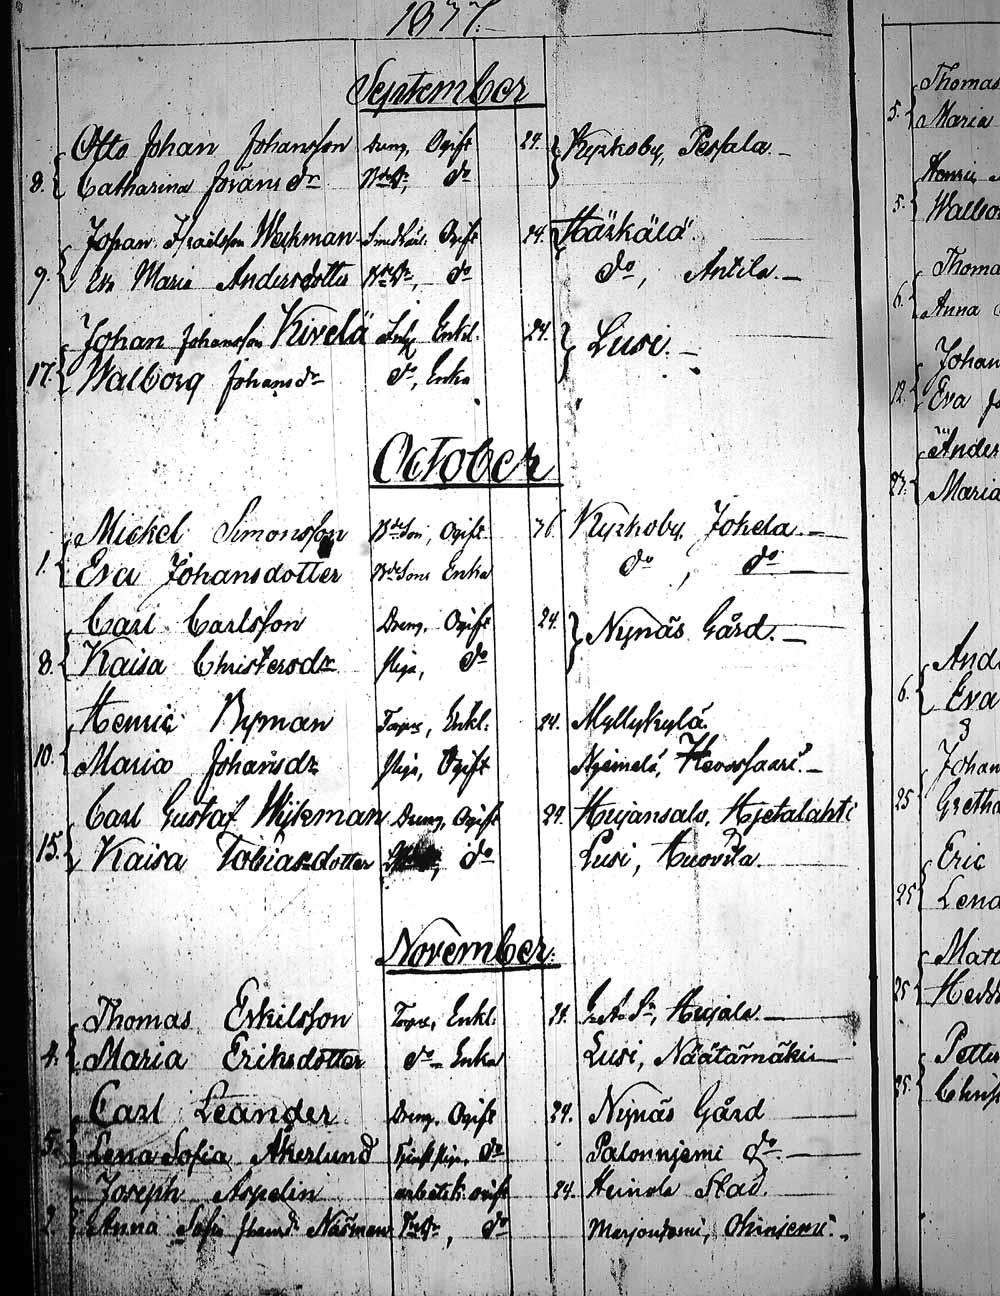 1877.
September
Otto Johan Johansson Dreng, Ogift 24. Kyrkoby, Perhala
8. Catharina Göransdr Bdedr, do
Johan Israelsson Wekman Ogift 24. Härkälä
9. Eva Maria Andersdotter Bdedr, do do, Antila
Johan Johansson Kivelä Enkl. 24. Lusi.
17. Walborg Johansdr do, Enka
October
Mickel Simonsson Bdeson, Ogift 76. Kyrkoby, Johela
1. Eva Johansdotter Bdesons Enka do, do
Carl Carlsson Dreng, Ogift 24. Nynäs Gård.
8. Kaisa Christersdr Piga, do
Henric Nyman Torpare, Enkl. 24. Myllykylä
10. Maria Johansdr Piga, Ogift Hevossaari
Carl Gustaf Wijkman Dreng, Ogift 24. Hujansalo, Hietalahti
15. Kaisa Tobiasdotter do Lusi, Huovila.
November
Thomas Eskilsson Torpare, Enkl. 24. Hujala
4. Maria Eriksdotter do Enka Lusi, Näätämäki
Carl Leander Dreng, Ogift 24. Nynäs Gård
5. Lena Sofia Åkerlund do Palonniemi do
Joseph Aspelin arbetsk. ogift 24. Heinola Stad.
Anna Sofia Näsman do Marjoniemi, Ohiniemi
Thomas
5. Maria
Henric
5. Walbor
Thoma
6. Anna
Johan
12. Eva Jo
Ander
27. Maria
And
6. Eva
Johan
25 Gretha
Eric
25 Lena
Matt
25 Hedv
Petter
25. Chris